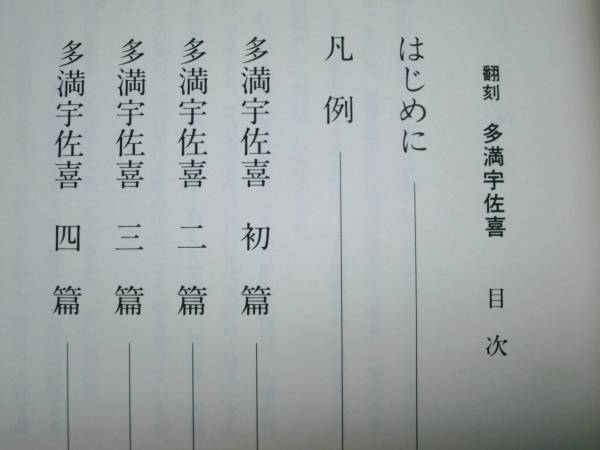 翻刻 多満宇佐喜 目次
はじめに
凡例
多満宇佐喜 初篇
多満宇佐喜 二篇
多満宇佐喜 三篇
多満宇佐喜 四篇